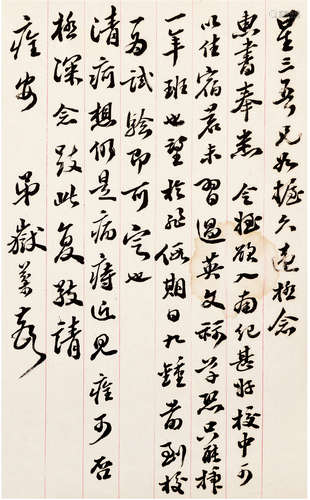 星三吾兄如握久違極念
惠書奉悉令姪欲入南紀甚好校中可
以住宿若未習過英文科學恐只能插
一年班也望於假期日九鐘前到校
一為試驗即可定也
清病想仍是病痔近見痊可否
極深念致此复敬請
痊安 弟嶽棻